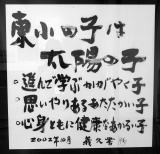 東小田子は
太陽の子
○進んで学ぶかがやく子
○思いやりあるあたたかい子
○心身ともに健康なあかるい子
2002年10月